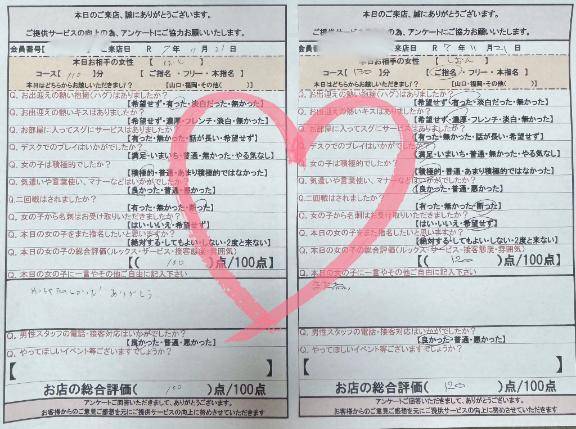 本日のご来店、誠にありがとうございます。
ご提供サービスの向上の為、アンケートにご協力お願いいたします。
会員番号【 ご来店日 R 7年 11月 21日
本日お相手の女性 【
コース【 110 】分 【 ご指名・フリー・本指名 】
本日はどちらからお越しいただきましたか? 【山口・福岡・その他( )】
Q. お出迎えの熱い抱擁(ハグ)はありましたか?
【希望せず・有った・淡白だった・無かった】
Q. お出迎えの熱いキスはありましたか?
【希望せず・濃厚・フレンチ・淡白・無かった】
Q. お部屋に入ってスグにサービスはありましたか?
【有った・無かった・話が長い・希望せず】
Q. デスクでのプレイはいかがでしたか?
【満足・いまいち・普通・無かった・やる気なし】
Q. 女の子は積極的でしたか?
【積極的・普通・あまり積極的ではなかった】
Q. 気遣いや言葉使い、マナーなどはいかがでしたか?
【良かった・普通・悪かった】
Q. 二回戦はされましたか?
【有った・無かった・断った】
Q. 女の子から名刺はお受け取りいただきましたか?
【はい・いいえ・希望せず】
Q. 本日の女の子をまた指名したいと思いますか?
【絶対する・してもよい・しない・2度と来ない】
Q. 本日の女の子の総合評価(ルックス・サービス・接客態度・雰囲気)
【( 100 )点/100点】
Q. 本日の女の子に一言やその他ご自由に記入下さい
ありがとう
Q. 男性スタッフの電話・接客対応はいかがでしたか?
【良かった・普通・悪かった】
Q. やってほしいイベント等ございますでしょうか?
【 】
お店の総合評価( 100 )点/100点
アンケートご回答いただきまして、ありがとうございます。
お客様からのご意見ご感想を元にご提供サービスの向上に努めさせていただきます
本日のご来店、誠にありがとうございます。
ご提供サービスの向上の為、アンケートにご協力お願いいたします。
会員番号【 ご来店日 R 7年 11月 21日
本日お相手の女性 【
コース【 130 】分 【 ご指名・フリー・本指名 】
本日はどちらからお越しいただきましたか? 【山口・福岡・その他( )】
Q. お出迎えの熱い抱擁(ハグ)はありましたか?
【希望せず・有った・淡白だった・無かった】
Q. お出迎えの熱いキスはありましたか?
【希望せず・濃厚・フレンチ・淡白・無かった】
Q. お部屋に入ってスグにサービスはありましたか?
【有った・無かった・話が長い・希望せず】
Q. デスクでのプレイはいかがでしたか?
【満足・いまいち・普通・無かった・やる気なし】
Q. 女の子は積極的でしたか?
【積極的・普通・あまり積極的ではなかった】
Q. 気遣いや言葉使い、マナーなどはいかがでしたか?
【良かった・普通・悪かった】
Q. 二回戦はされましたか?
【有った・無かった・断った】
Q. 女の子から名刺はお受け取りいただきましたか?
【はい・いいえ・希望せず】
Q. 本日の女の子をまた指名したいと思いますか?
【絶対する・してもよい・しない・2度と来ない】
Q. 本日の女の子の総合評価(ルックス・サービス・接客態度・雰囲気)
【( 120 )点/100点】
Q. 本日の女の子に一言やその他ご自由に記入下さい
Q. 男性スタッフの電話・接客対応はいかがでしたか?
【良かった・普通・悪かった】
Q. やってほしいイベント等ございますでしょうか?
【 】
お店の総合評価( 120 )点/100点
アンケートご回答いただきまして、ありがとうございます。
お客様からのご意見ご感想を元にご提供サービスの向上に努めさせていただきます